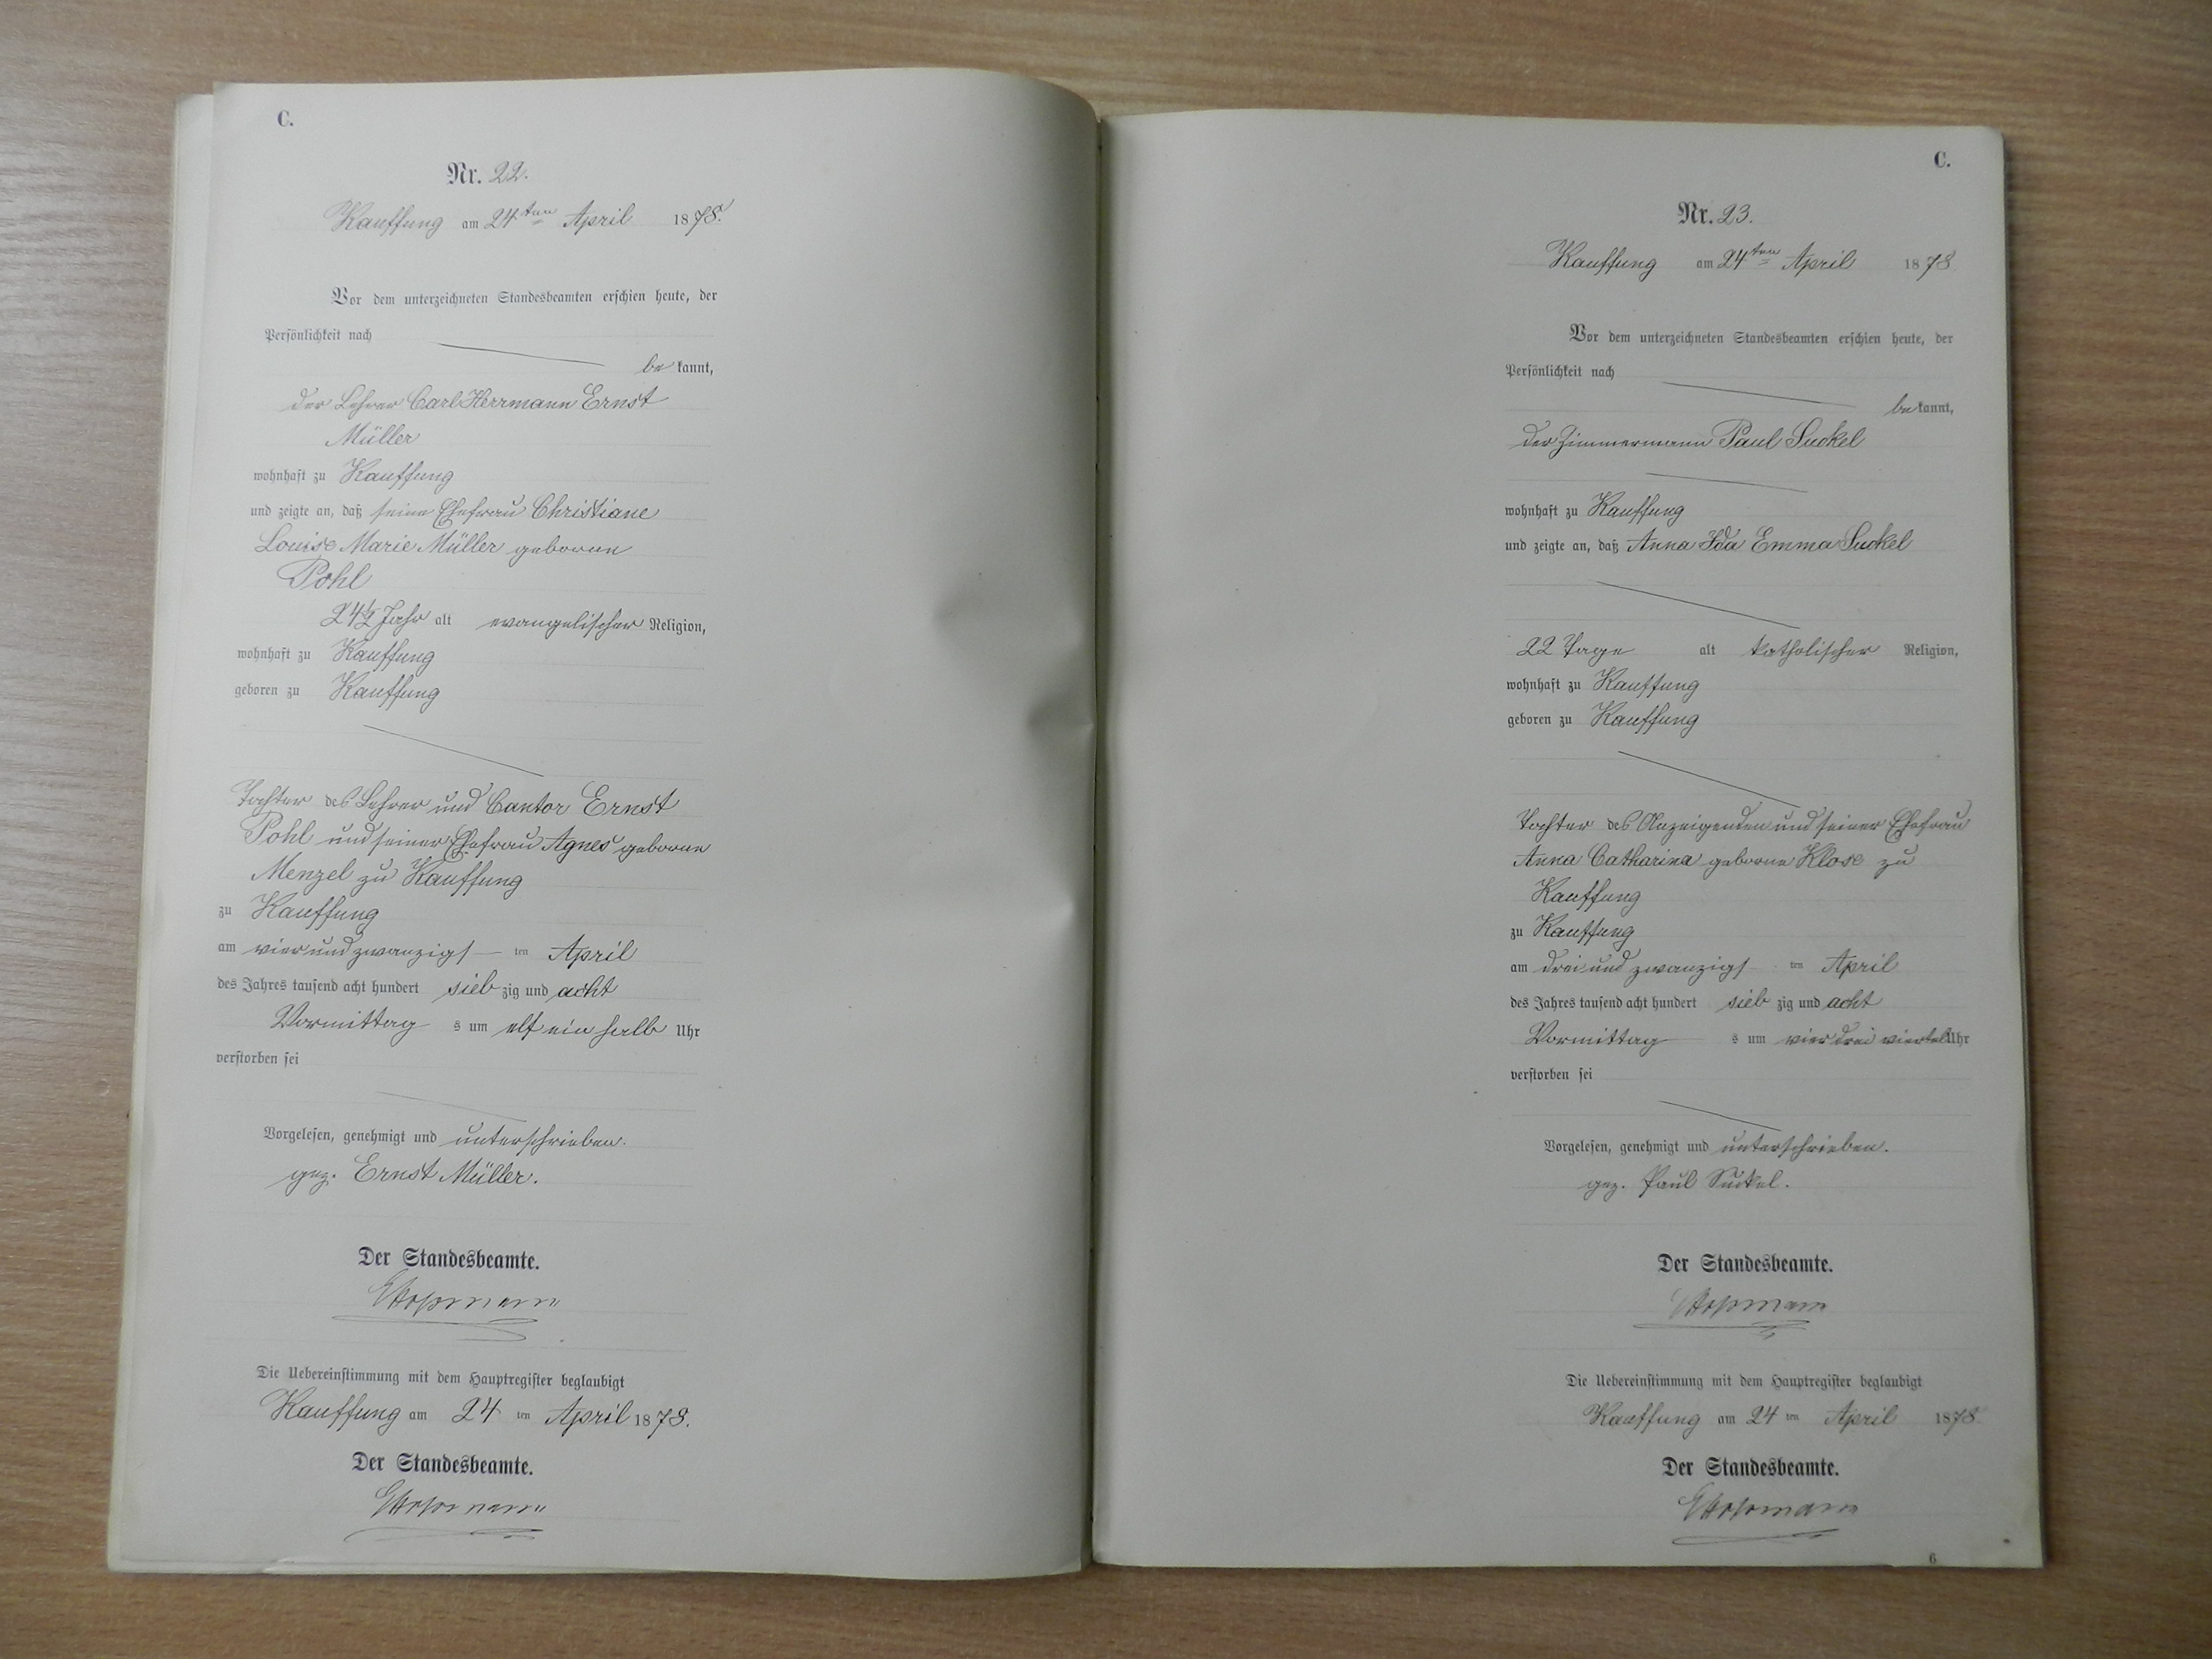 C.
Nr. 22.
Kauffung am 24ten April 1878.
Vor dem unterzeichneten Standesbeamten erschien heute, der
Persönlichkeit nach
be kannt,
der Lehrer Carl Herrmann Ernst
Müller
wohnhaft zu Kauffung
und zeigte an, daß seine Ehefrau Christiane
Louise Marie Müller geborne
Pohl
24½ Jahr alt evangelischer Religion,
wohnhaft zu Kauffung
geboren zu Kauffung
Tochter des Lehrer und Cantor Ernst
Pohl und seiner Ehefrau Agnes geborne
Menzel zu Kauffung
zu Kauffung
am vier und zwanzigs ten April
des Jahres tausend acht hundert sieb zig und acht
Vormittag s um elf ein halb Uhr
verstorben sei
Vorgelesen, genehmigt und unterschrieben.
gez. Ernst Müller.
Der Standesbeamte.
Die Uebereinstimmung mit dem Hauptregister beglaubigt
Kauffung am 24 ten April 1878.
Der Standesbeamte.
C.
Nr. 23.
Kauffung am 24ten April 1878
Vor dem unterzeichneten Standesbeamten erschien heute, der
Persönlichkeit nach
be kannt,
der Zimmermann Paul Suckel
wohnhaft zu Kauffung
und zeigte an, daß Anna Ida Emma Suckel
22 Tage alt katholischer Religion,
wohnhaft zu Kauffung
geboren zu Kauffung
Tochter des Anzeigenden und seiner Ehefrau
Anna Catharina geborne Klose zu
Kauffung
zu Kauffung
am drei und zwanzigs ten April
des Jahres tausend acht hundert sieb zig und acht
Vormittag s um vier drei viertel Uhr
verstorben sei
Vorgelesen, genehmigt und unterschrieben.
gez. Paul Suckel.
Der Standesbeamte.
Die Uebereinstimmung mit dem Hauptregister beglaubigt
Kauffung am 24 ten April 1878
Der Standesbeamte.
6